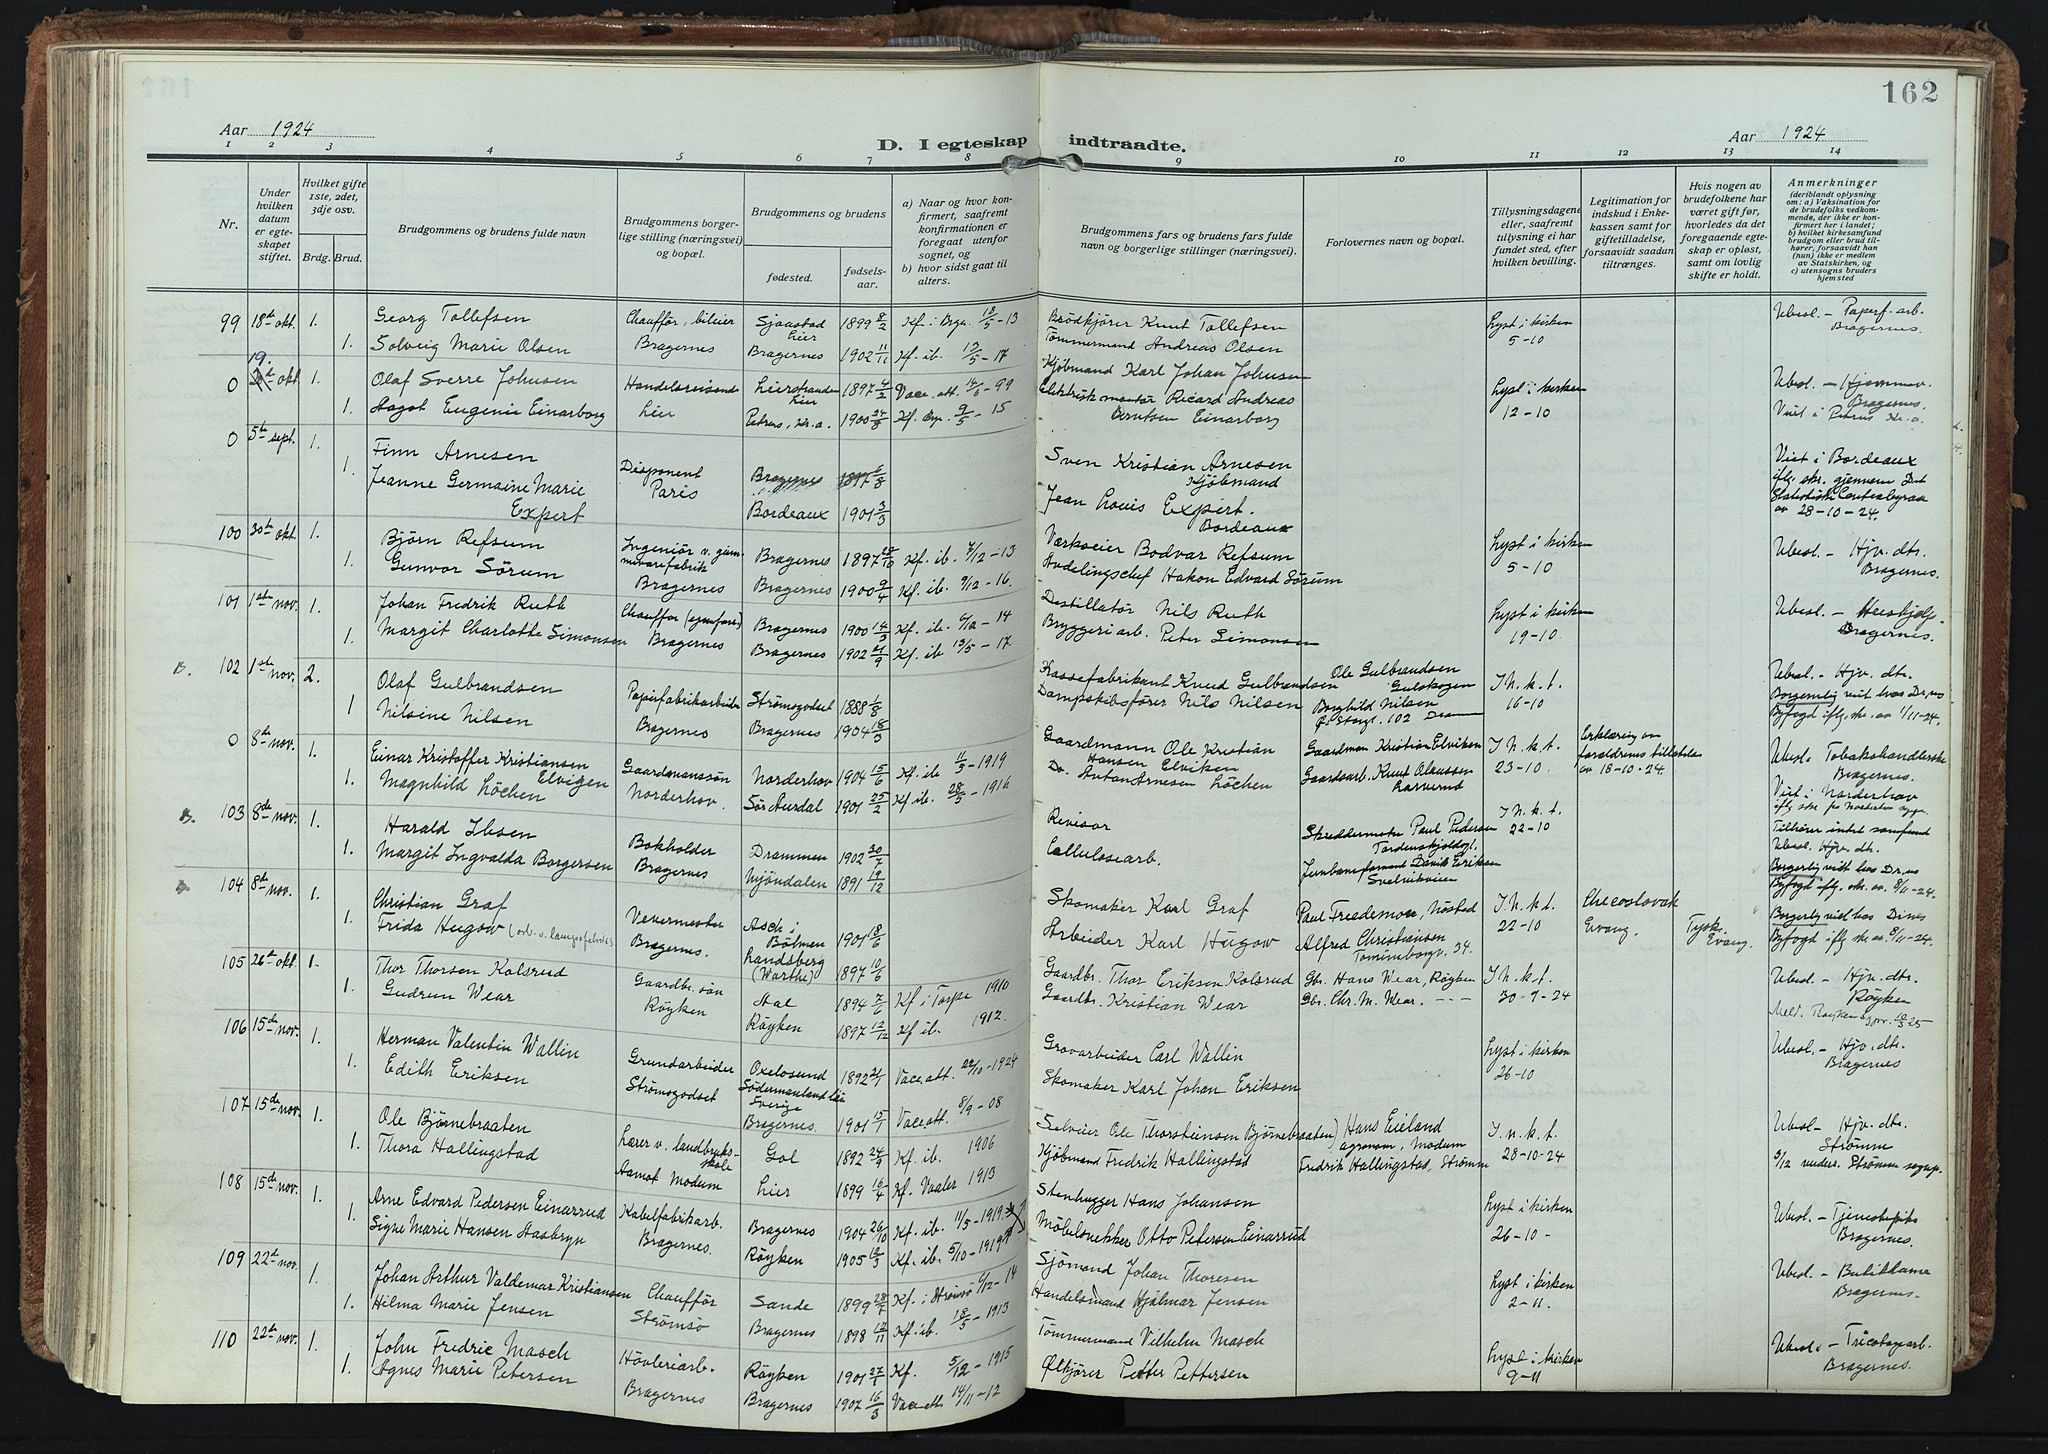 162
Aar 1924
D. I egteskap indtraadte.
Aar 1924
1 2 3 4 5 6 7 8 9 10 11 12 13 14
Nr.
Under hvilken datum er egteskapet stiftet.
Hvilket gifte 1ste, 2det, 3dje osv.
Brdg. Brud.
Brudgommens og brudens fulde navn
Brudgommens borgerlige stilling (næringsvei) og bopæl.
Brudgommens og brudens
fødested.
fødselsaar.
a) Naar og hvor konfirmert, saafremt konfirmationen er foregaat utenfor sognet, og
b) hvor sidst gaat til alters.
Brudgommens fars og brudens fars fulde navn og borgerlige stillinger (næringsvei).
Forlovernes navn og bopæl.
Tillysningsdagene eller, saafremt tillysning ei har fundet sted, efter hvilken bevilling.
Legitimation for indskud i Enkekassen samt for giftetilladelse, forsaavidt saadan tiltrænges.
Hvis nogen av brudefolkene har været gift før, hvorledes da det foregaaende egteskap er opløst, samt om lovlig skifte er holdt.
Anmerkninger
(deriblandt oplysning om: a) Vaksination for de brudefolks vedkommende, der ikke er konfirmert her i landet; b) hvilket kirkesamfund brudgom eller brud tilhører, forsaavidt han (hun) ikke er medlem av Statskirken, og c) utensogns bruders hjemsted
99 18de okt. 1. Georg Tollefsen Chauffør, bileier Sjaastad Lier 1899 8/2 Kf. i Brgn. 18/5-13 Brødkjører Knut Tollefsen Lyst i kirken 5-10 Ubesl. - Papirf. arb. Bragernes.
1. Solveig Marie Olsen Bragernes Bragernes 1902 11/11 Kf. ib. 13/5-17 Tømmermand Andreas Olsen
0 19. okt. 1. Olaf Sverre Johnsen Handelsreisende Lierstranden Lier 1897 4/2 Vacc. att. 14/6-99 Kjøbmand Karl Johan Johnsen Lyst i kirken 12-10 Ubesl. - Hjemmev. Bragernes.
1. Aagot Eugenie Einarborg Lier Petrus, Kr.a. 1900 24/8 Kf. Brg. 9/5-15 Elektrisk montør Ricard Andreas Berntsen Einarborg Viet i Petrus Kr.a.
0 5te sept. 1. Finn Arnesen Disponent Paris Bragernes Sven Kristian Arnesen Kjøbmand Viet i Bordeaux
1. Jeanne Germaine Marie Expert Bordeaux 1901 3/3 Jean Louis Expert. Bordeaux iflg. skr. gjennem Det Statistiske Centralbyraa av 28-10-24.
100 30te okt. 1. Bjørn Refsum Ingeniør v. gummivarefabrik Bragernes 1897 28/10 Kf. ib. 7/12-13 Verkseier Bodvar Refsum Lyst i kirken 5-10 Ubesl. - Hjv. dtr. Bragernes.
1. Gunvor Sørum Bragernes Bragernes 1900 9/4 Kf. ib. 9/12-16. Avdelingschef Hakon Edvard Sørum
101 1ste nov. 1. Johan Fredrik Ruth Chauffør Bragernes 1900 14/3 Kf. ib. 6/12-14 Destillatør Nils Ruth Lyst i kirken 19-10 Ubesl. - Bragernes.
1. Margit Charlotte Simonsen Bragernes Bragernes 1902 21/9 Kf. ib. 13/5-17. Bryggeriarb. Peter Simonsen
B. 102 1ste nov. 2. Olaf Gulbrandsen Papirfabrikarbeider Strømsgodset 1888 1/8 Kassefabrikant Knud Gulbrandsen Ole Gulbrandsen Gulskogen I.N.k.t. 16-10 Ubesl. - Hjv. dtr.
1 Nilsine Nilsen Bragernes Bragernes 1904 18/3 Dampskibsfører Nils Nilsen Borghild Nilsen Ø. Storgt. 102 Dramm Borgerlig viet hos Dr.ns Byfogd iflg. skr. av 1/11-24.
0 8de nov. 1. Einar Kristoffer Kristiansen Elvigen Gaardmandssøn Norderhov 1904 15/6 Kf. ib 11/5-1919 Gaardmann Ole Kristian Hansen Elviken Gaardman Kristian Elviken I.N.k.t. 23-10. Erklæring om foreldrenes tilladelse av 18-10-24. Ubesl. Tobakshandlerske Bragernes.
1. Magnhild Løchen Norderhov. Sør Aurdal 1901 25/2 Kf. ib. 28/5-1916 Do. Anton Arnesen Løchen Gaardsarb. Knut Olaussen Larverud Viet i Norderhov
B. 103 8de nov. 1. Harald Ibsen Bokholder Drammen 1902 30/7 Revisor Skreddermster Paul Pedersen Tordenskjoldsgt. I.N.k.t. 22-10 Tilhører intet samfund Ubesl. Hjv. dtr.
1. Margit Ingvalda Borgersen Bragernes Mjøndalen 1891 19/12 Cellulosearb. Jernbaneformand David Eriksen Svelvikveien Borgerlig viet hos Dr.ns Byfogd iflg. skr. av. 8/11-24.
B. 104 8de nov. 1. Christian Graf Vevermester Asch i Bøhmen 1901 18/6 Skomaker Karl Graf Paul Friedemow, Nøsted I.N.k.t. 22-10 Checoslovak Evang. Borgerlig viet hos Dr.ns
1. Frida Hugow Bragernes. Landsberg (Warthe) 1897 10/6 Arbeider Karl Hugow Alfred Christiansen 34. Tysk. Evang. Byfogd iflg. skr. av. 8/11-24.
105 26de okt. 1. Thor Thorsen Kolsrud Gaardbr. søn Aal 1894 7/6 Kf. i Torpe 1910 Gaardbr. Thor Eriksen Kolsrud Gbr. Hans Wear, Røyken I.N.k.t. 30-9-24 Ubesl. - Hjv. dtr. Røyken
1. Gudrun Wear Røyken Røyken 1897 12/12 Kf ib. 1912. Gaardbr. Kristian Wear Gbr. Chr. M. Wear. - - - Meld. Røyken
106 15de nov. 1. Herman Valentin Wallin Grundarbeider Oxelosund Södermanland Län Sverige 1892 21/1 Vacc. att. 22/10-1924 Grovarbeider Carl Wallin Lyst i kirken 26-10 Ubesl. - Hjv. dtr. Bragernes
1. Edith Eriksen Strømsgodset Bragernes. 1901 15/1 Vacc. att. 8/9-08 Skomaker Karl Johan Eriksen
107 15de nov. 1. Ole Bjørnebraaten Lærer v. landbruksskole Gol 1892 24/9 Kf. ib. 1906 Selveier Ole Thorsteinsen Bjørnebraaten Hans Eieland agronom, Modum I.n.k.t. 28-10-24 Ubesl - Hjv. dtr. Strømm
1. Thora Hallingstad Aamot Modum Lier 1899 16/4 Kf. Vaaler 1913 Kjøbmand Fredrik Hallingstad Fredrik Hallingstad, Strømm 5/12 underr. Strømm sogn
108 15de nov. 1. Arne Edvard Pedersen Einarrud Kabelfabrikarb. Bragernes 1904 26/10 Kf. ib. 11/5-1919 Stenhugger Hans Johansen Lyst i kirken 26-10 - Ubesl - Tjenestepike Bragernes.
1. Signe Marie Hansen Aasbryn Bragernes. Røyken 1905 12/3 Kf. ib. 5/10-1919 Møbelsnekker Otto Petersen Einarrud
109 22de nov. 1. Johan Arthur Valdemar Kristiansen Chauffør Sande 1899 Kf. i Strømsø 6/12-14 Sjømand Johan Thoresen Lyst i kirken 2-11 Ubesl - Butikdame Bragernes-
1. Hilma Marie Jensen Strømsø Bragernes 1898 12/11 Kf. ib. 18/5-1913 Handelsmand Hjalmar Jensen
110 22de nov. 1. John Fredric Masch Høvleriarb. Røyken 1901 Kf. 5/12-1915 Tømmermand Vilhelm Masch Lyst i kirken 9-11 Ubesl - Tricotagearb. Bragernes.
1. Agnes Marie Petersen Bragernes Bragernes 1907 16/3 Vacc att 14/11-12 Ølkjører Petter Pettersen